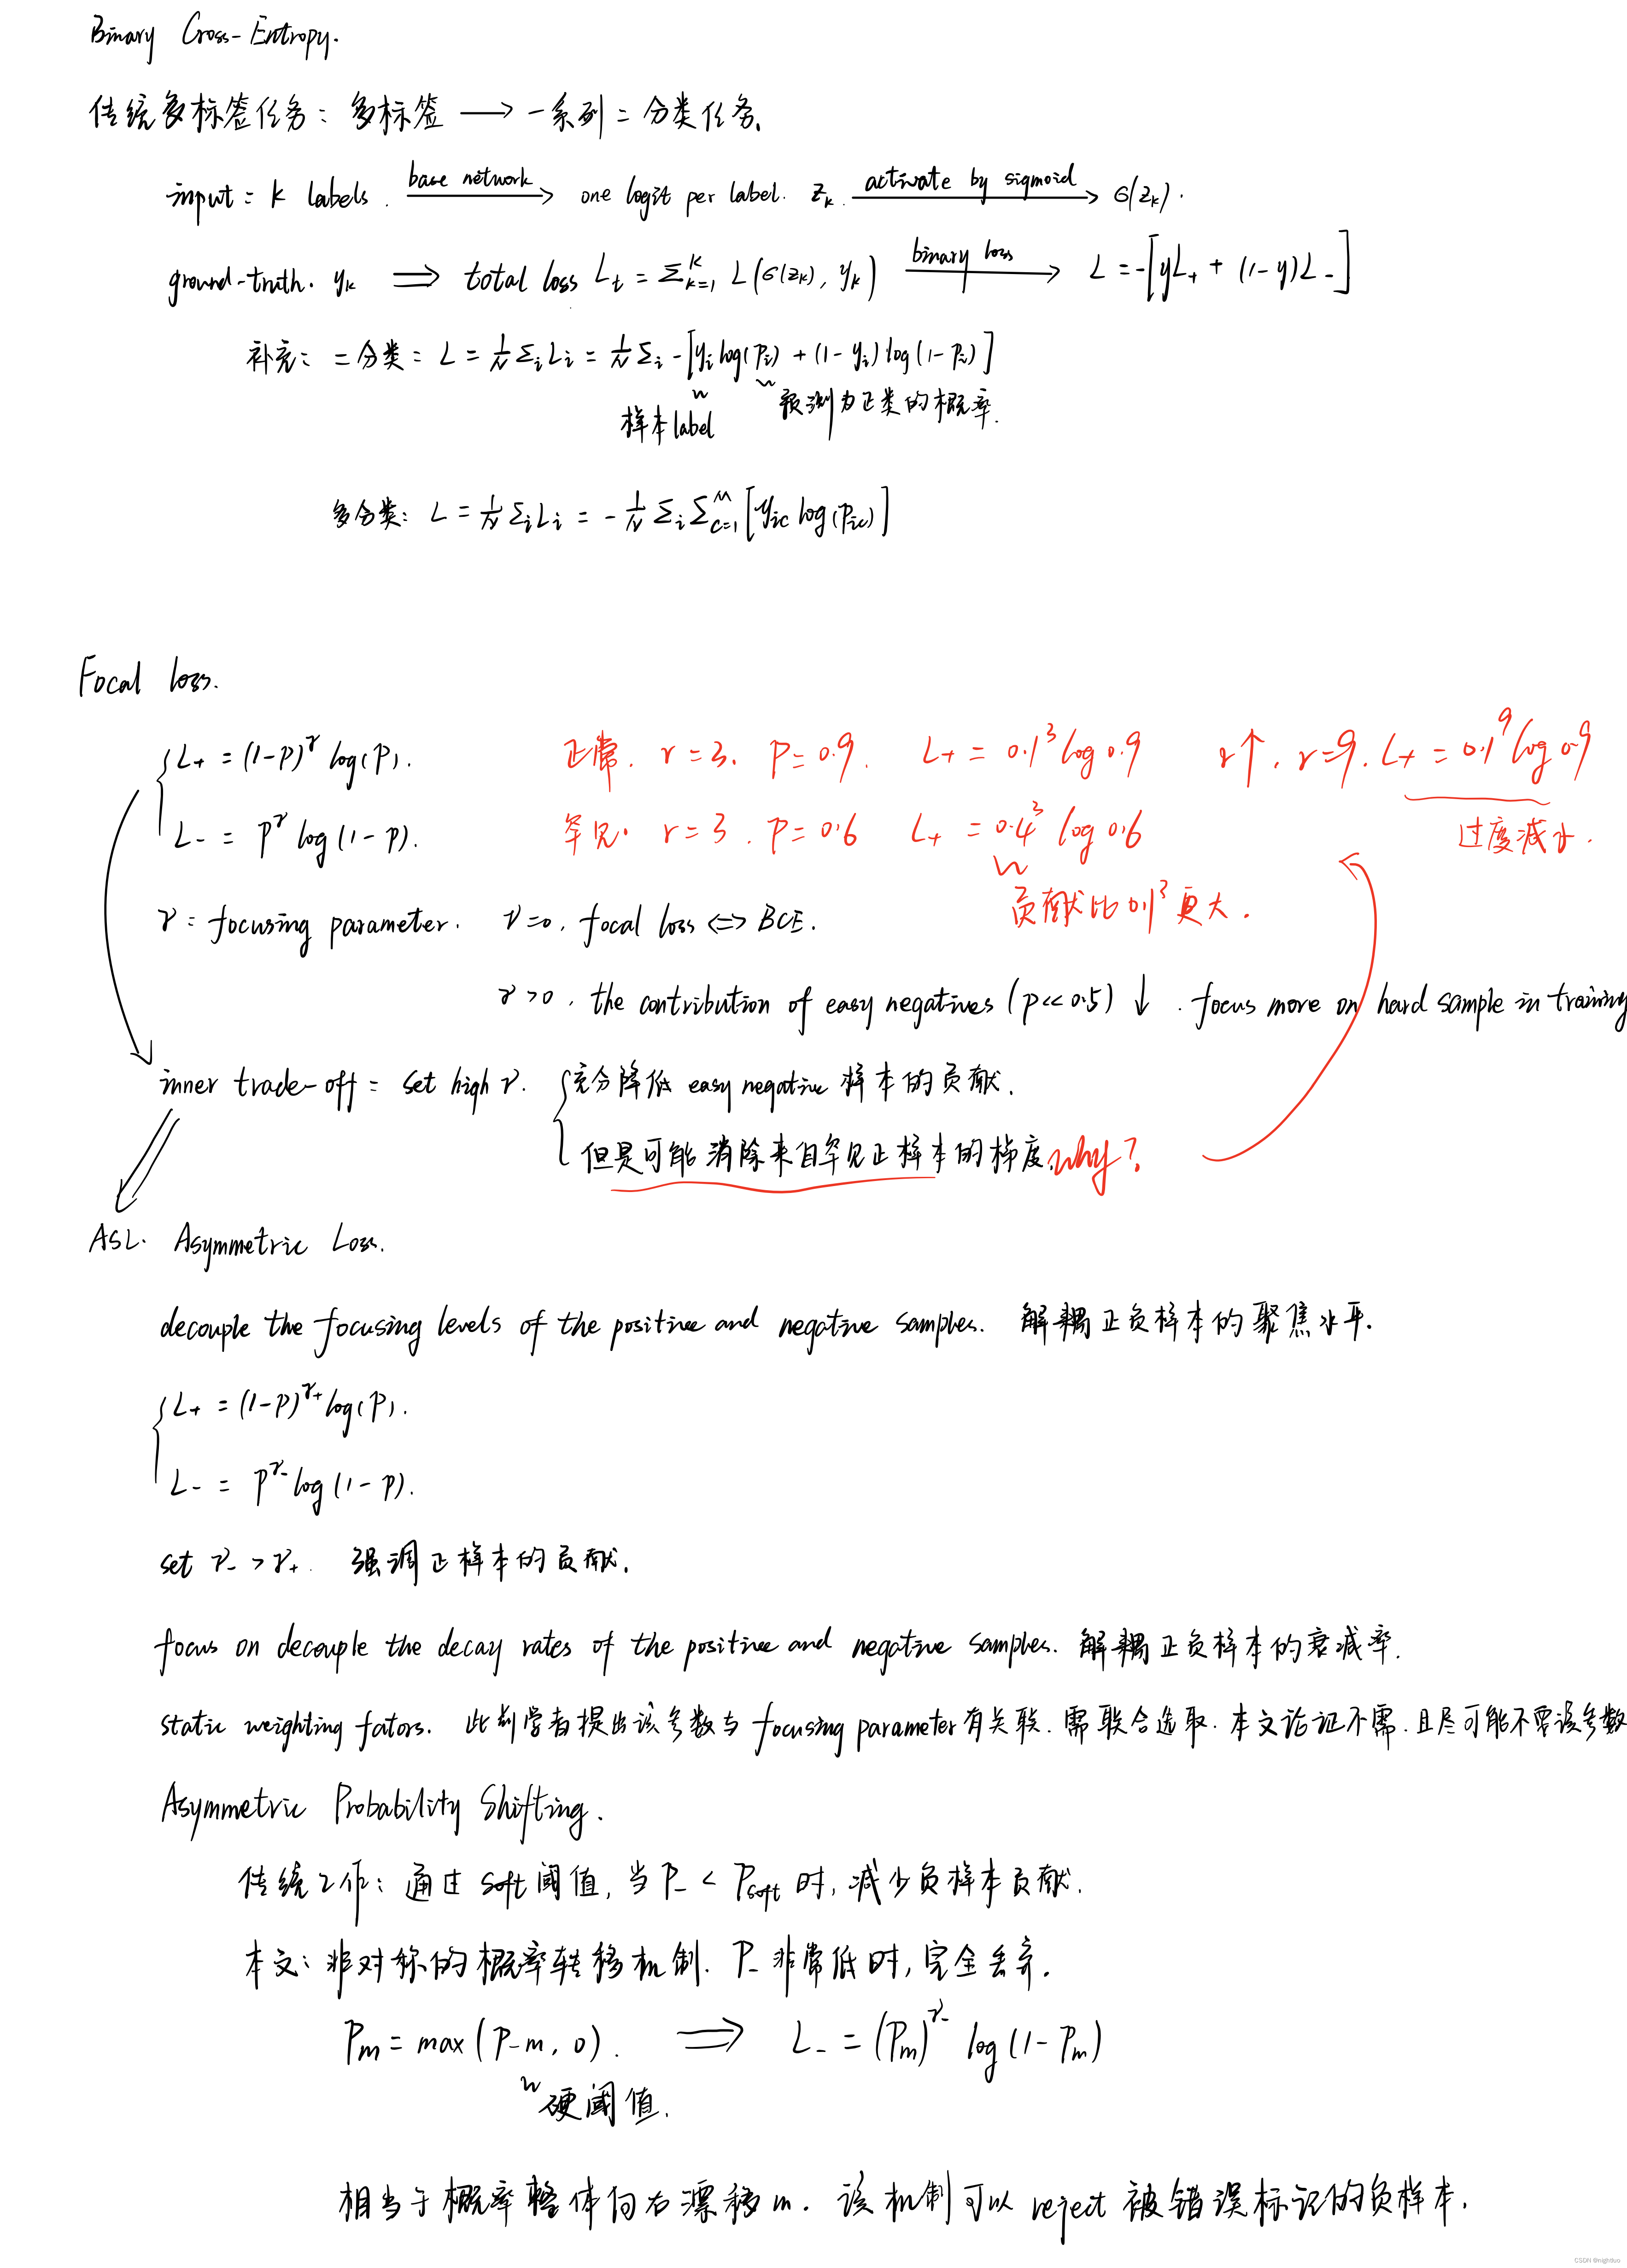 Binary Cross-Entropy.
传统多标签任务: 多标签 ⟶ 一系列二分类任务.
input: K labels. base network ⟶ one logit per label. z_k. activate by sigmoid ⟶ σ(z_k).
ground-truth. y_k ⟹ total loss L_t = Σ_{k=1}^{K} L(σ(z_k), y_k) binary loss ⟶ L = -[yL_+ + (1-y)L_-]
补充: 二分类: L = 1/N Σ_i L_i = 1/N Σ_i -[y_i log(p_i) + (1-y_i) log(1-p_i)]
样本label 预测为正类的概率.
多分类: L = 1/N Σ_i L_i = -1/N Σ_i Σ_{c=1}^{M} [y_{ic} log(p_{ic})]
Focal loss.
L_+ = (1-p)^γ log(p). 正常. r=3. p=0.9. L_+ = 0.1^3 log 0.9 r↑. r=9. L_+ = 0.1^9 log 0.9
L_- = p^γ log(1-p). 罕见. r=3. p=0.6 L_+ = 0.4^3 log 0.6 过度减小.
贡献比0.1^3更大.
γ: focusing parameter. γ=0, focal loss ⟺ BCE.
γ>0, the contribution of easy negatives (p≪0.5) ↓. focus more on hard sample in training
inner trade-off: set high γ. 充分降低 easy negative 样本的贡献.
但是可能消除来自罕见正样本的梯度. why?
ASL. Asymmetric Loss.
decouple the focusing levels of the positive and negative samples. 解耦正负样本的聚焦水平.
L_+ = (1-p)^{γ+} log(p).
L_- = p^{γ-} log(1-p).
set γ_- > γ_+. 强调正样本的贡献.
focus on decouple the decay rates of the positive and negative samples. 解耦正负样本的衰减率.
static weighting fators. 此前学者提出该参数与 focusing parameter 有关联. 需联合选取. 本文论证不需. 且尽可能不要该参数
Asymmetric Probability Shifting.
传统工作: 通过 soft 阈值, 当 P_- < P_soft 时, 减少负样本贡献.
本文: 非对称的概率转移机制. P_- 非常低时, 完全丢弃.
P_m = max(p-m, 0). ⟹ L_- = (P_m)^{γ-} log(1-P_m)
硬阈值.
相当于概率整体向右漂移m. 该机制可以 reject 被错误标记的负样本.
CSDN @nightduo